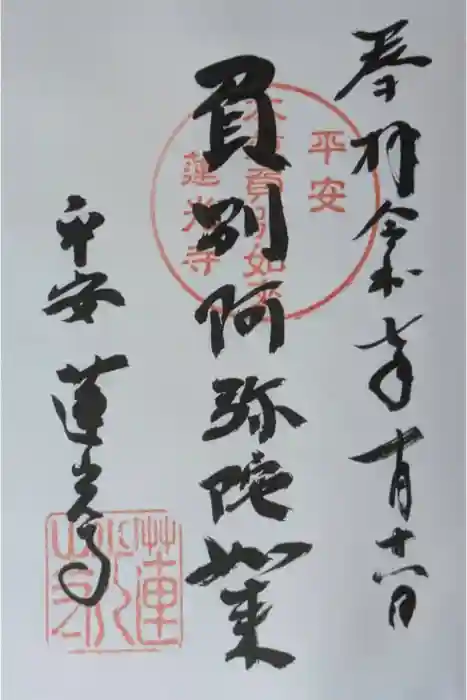 奉拝 令和七年 十月
平安
本尊負別如来
蓮光寺
負別阿弥陀如来
平安 蓮光寺